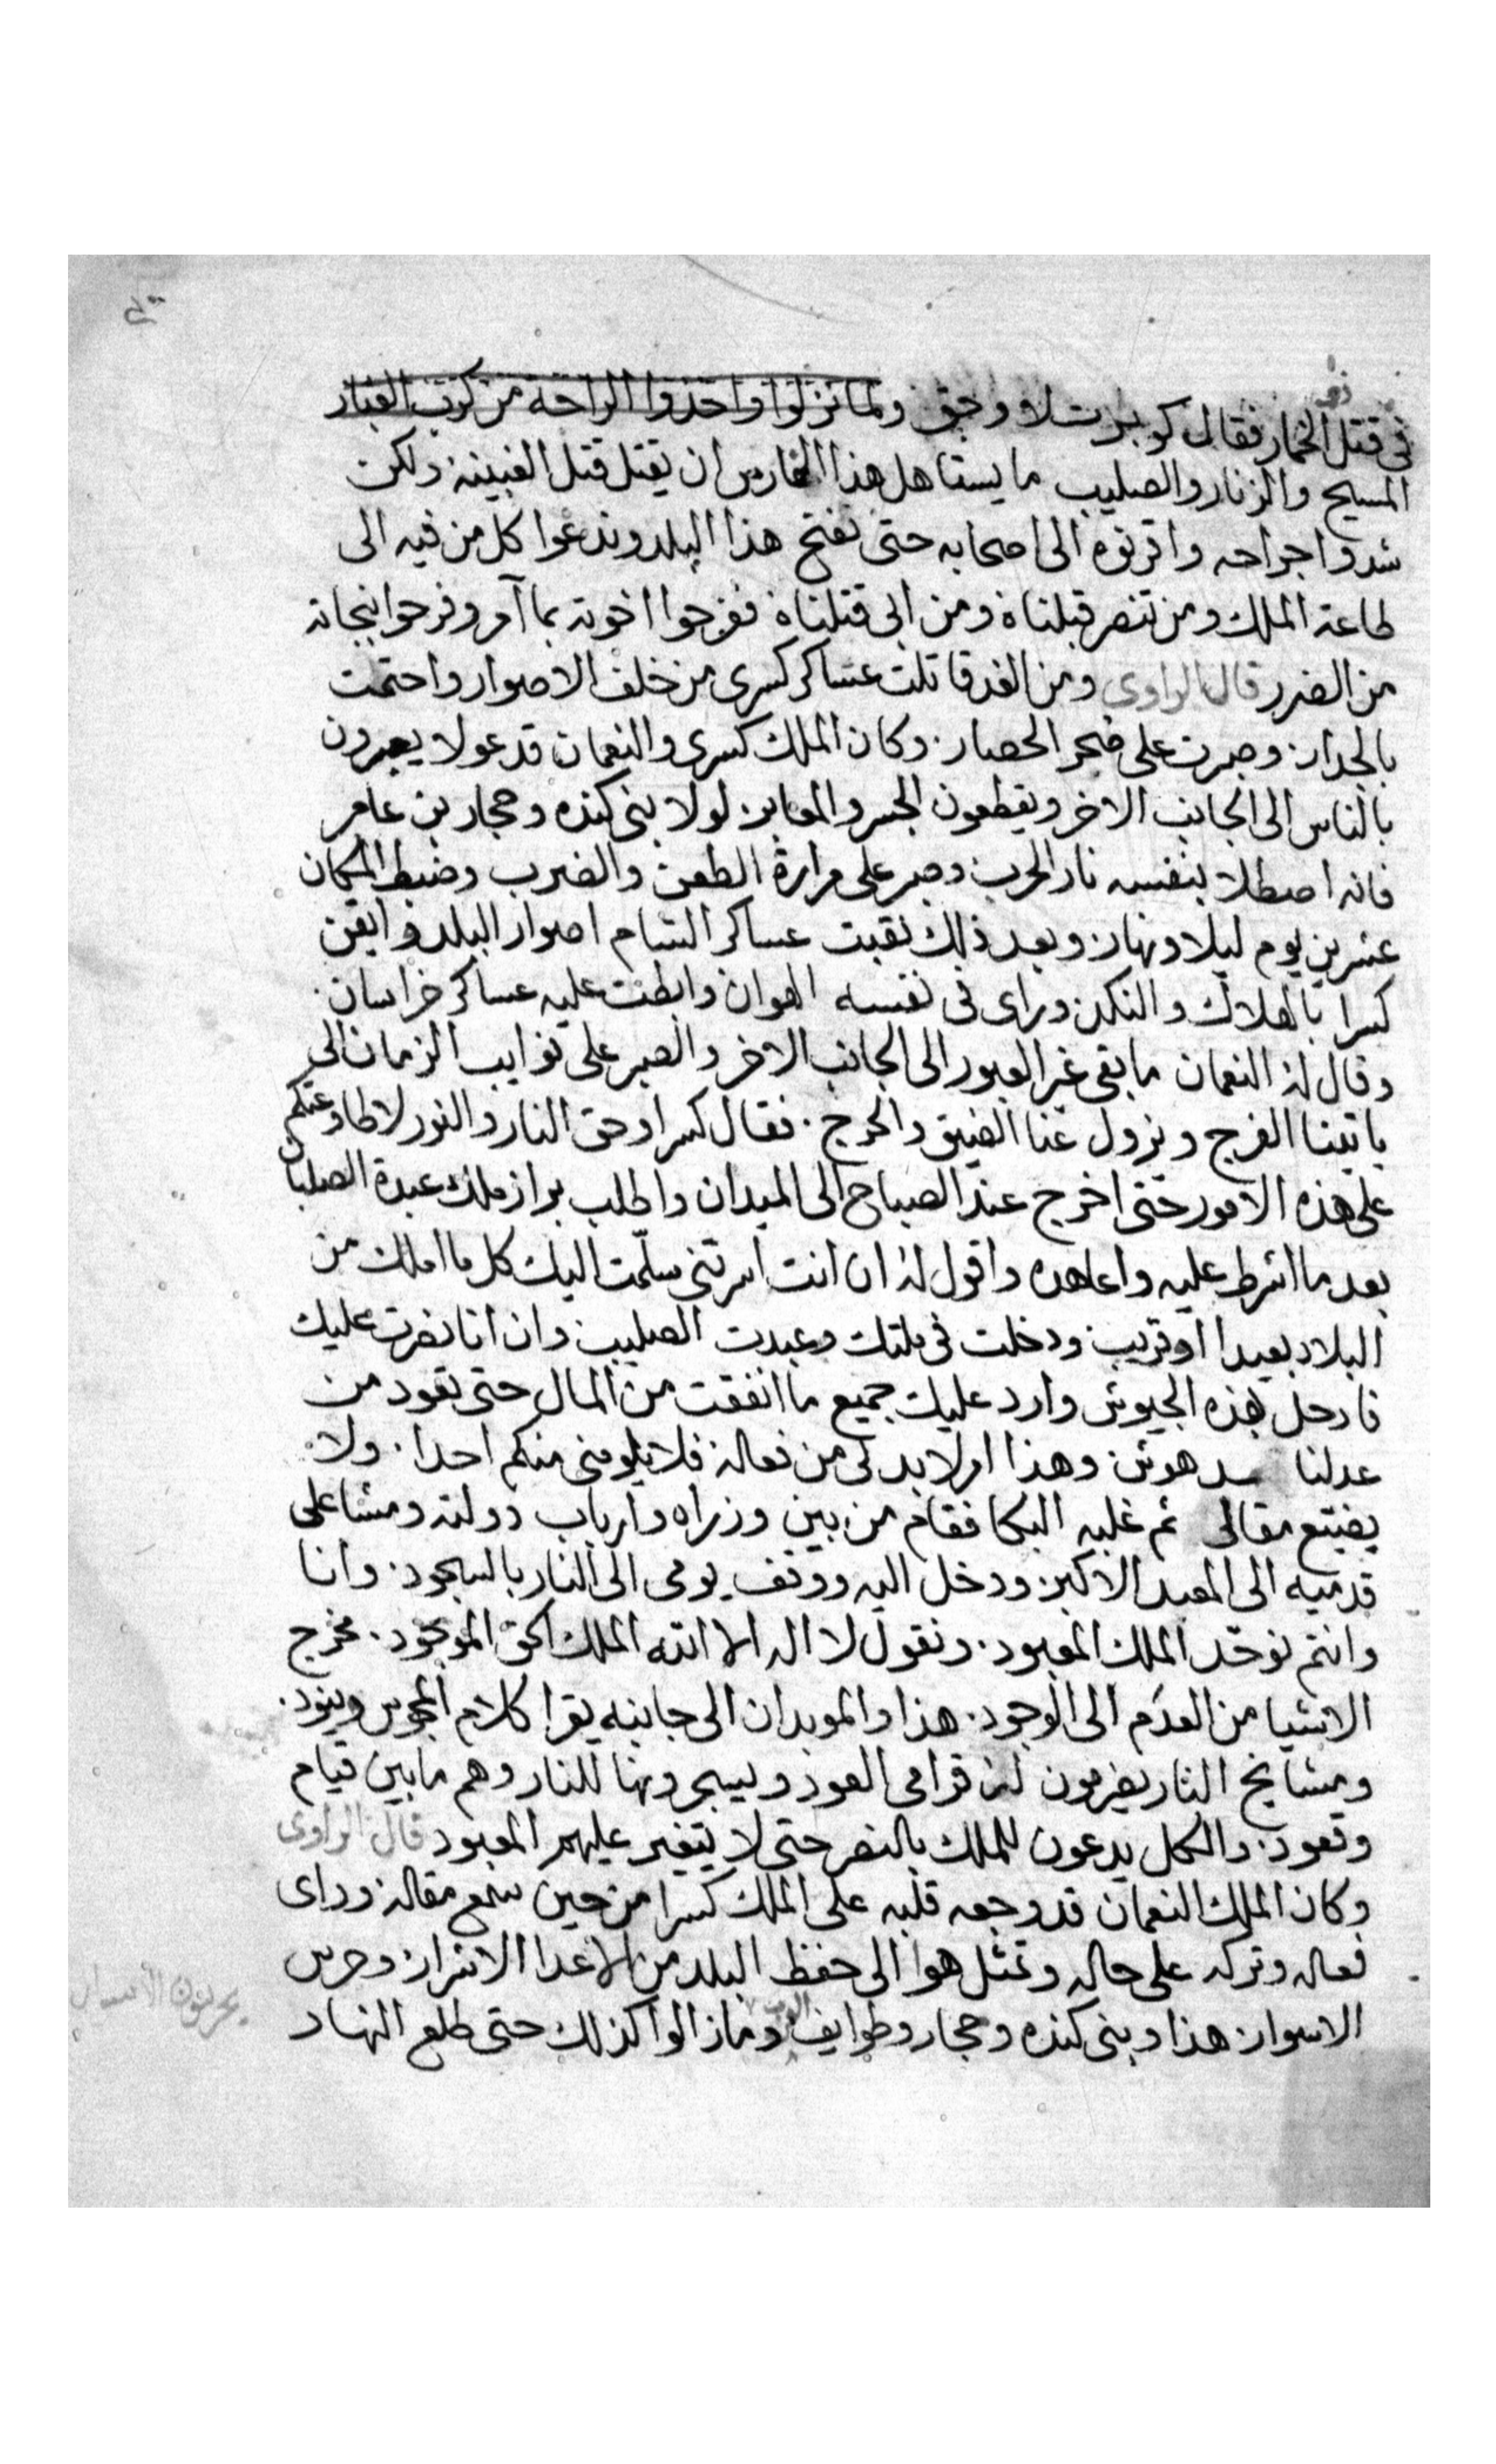 في قتل الخمار فقال كوبرت لا وحق ولما نزلوا واخذوا الراحة من كرب الغبار
المسيح والزنار والصليب ما يستاهل هذا الفارس ان يقتل قتل الغبينه ولكن
شدوا جراحه واقرنوه الى اصحابه حتى نفتح هذا البلد وندعوا كل من فيه الى
طاعة الملك ومن تنصر قبلناه ومن ابى قتلناه ففرجوا اخوته بما آمر وفرحوا بنجاته
من الضرر قال الراوى ومن الغد قاتلت عساكر كسرى من خلف الاصوار واحتمت
بالجدار وصبرت على ضجر الحصار وكان الملك كسرى والنعمان قد عولا يعبرون
بالناس الى الجانب الاخر ويقطعون الجسر والمعابر لولا بنى كنده وحجار بن عامر
فانه اصطلا بنفسه نار الحرب وصبر على مرارة الطعن والضرب وضبط المكان
عشرين يوم ليلا ونهار وبعد ذلك نقبت عساكر الشام اصوار البلد وايقن
كسرا بالهلاك والنكد وراى فى نفسه الهوان وابطت عليه عساكر خراسان
وقال له النعمان ما بقى غير العبور الى الجانب الاخر والصبر على نوايب الزمان الى
ياتينا الفرج ويزول عنا الضيق والحرج فقال كسرا وحق النار والنور لا طاوعتكم
على هذه الامور حتى اخرج عند الصباح الى الميدان واطلب براز ملك عبدة الصلبان
بعد ما اشرط عليه واعاهده واقول له ان انت اسرتنى سلمت اليك كل ما املك من
البلاد بعيدا او قريب ودخلت فى ملتك وعبدت الصليب وان انا نصرت عليك
فارحل بهذه الجيوش وارد عليك جميع ما انفقت من المال حتى تعود من
عدلنا هوش وهذا اولا بد لى من فعاله فلا يلومنى منكم احدا ولا
يضيع مقالى ثم غلبه البكا فقام من بين وزراه وارباب دولته ومشا على
قدميه الى المعبد الاكبر ودخل اليه ووقف يومى الى النار بالسجود وانا
وانتم نوحد الملك المعبود ونقول لا اله الا الله الملك الحق الموجود مخرج
الاشيا من العدم الى الوجود هذا والموبدان الى جانبه يقرا كلام المجوس وينود
ومشايخ النار يضرمون له قرامى العود ويسجرونها للنار وهم ما بين قيام
وقعود والكل يدعون للملك بالنصر حتى لا يتغير عليهم المعبود قال الراوى
وكان الملك النعمان قد وجعه قلبه على الملك كسرا من حين سمع مقاله وراى
فعاله وتركه على حاله وتمثل هوا الى حفظ البلد من الاعدا الاشرار وحرس
الاسوار هذا وبنى كنده وحجار وطوايف العرب وما زالوا كذلك حتى طلع النهار
يحرسون الاسوار